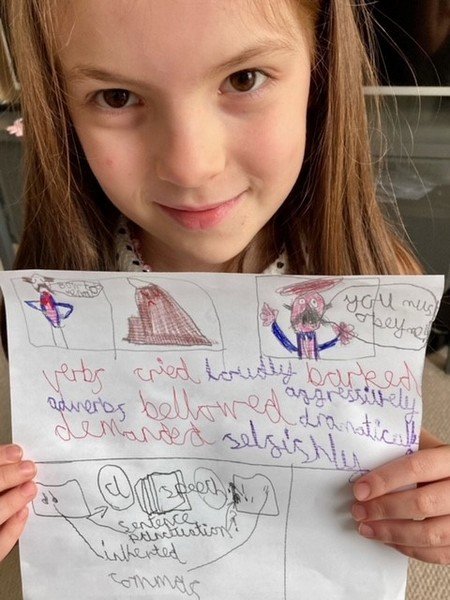 you must
obey me!
verbs cried loudly barked
adverbs bellowed aggressively
demanded selfishly dramatically
" cl speech . "
sentence
punctuation
inverted
commas